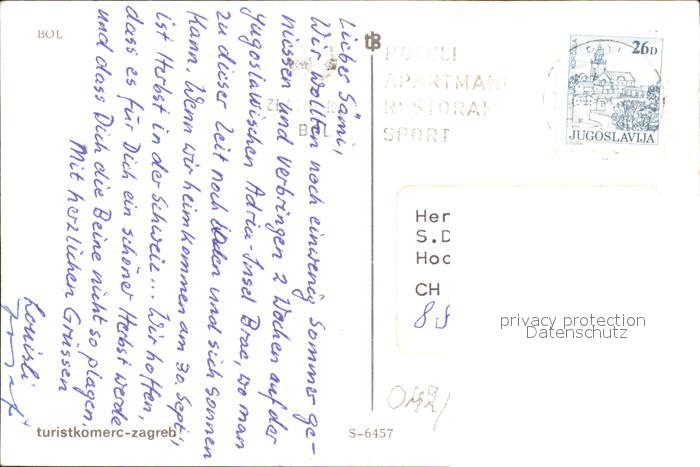 BOL
Lieber Sämi,
Wir wollten noch einwenig Sommer ge-
niessen und verbringen 2 Wochen auf der
Jugoslawischen Adria-Insel Brac, wo man
zu dieser Zeit noch baden und sich sonnen
kann. Wenn wir heimkommen am 30. Sept.,
ist Herbst in der Schweiz... Wir hoffen,
dass es für Dich ein schöner Herbst werde
und dass Dich die Beine nicht so plagen.
Mit herzlichen Grüssen
Louisli
turistkomerc-zagreb
S-6457
HOTELI
APARTMANI
RESTORAN
SPORT
BOL
26D
JUGOSLAVIJA
Her
S.D
Hoc
CH
88
privacy protection
Datenschutz